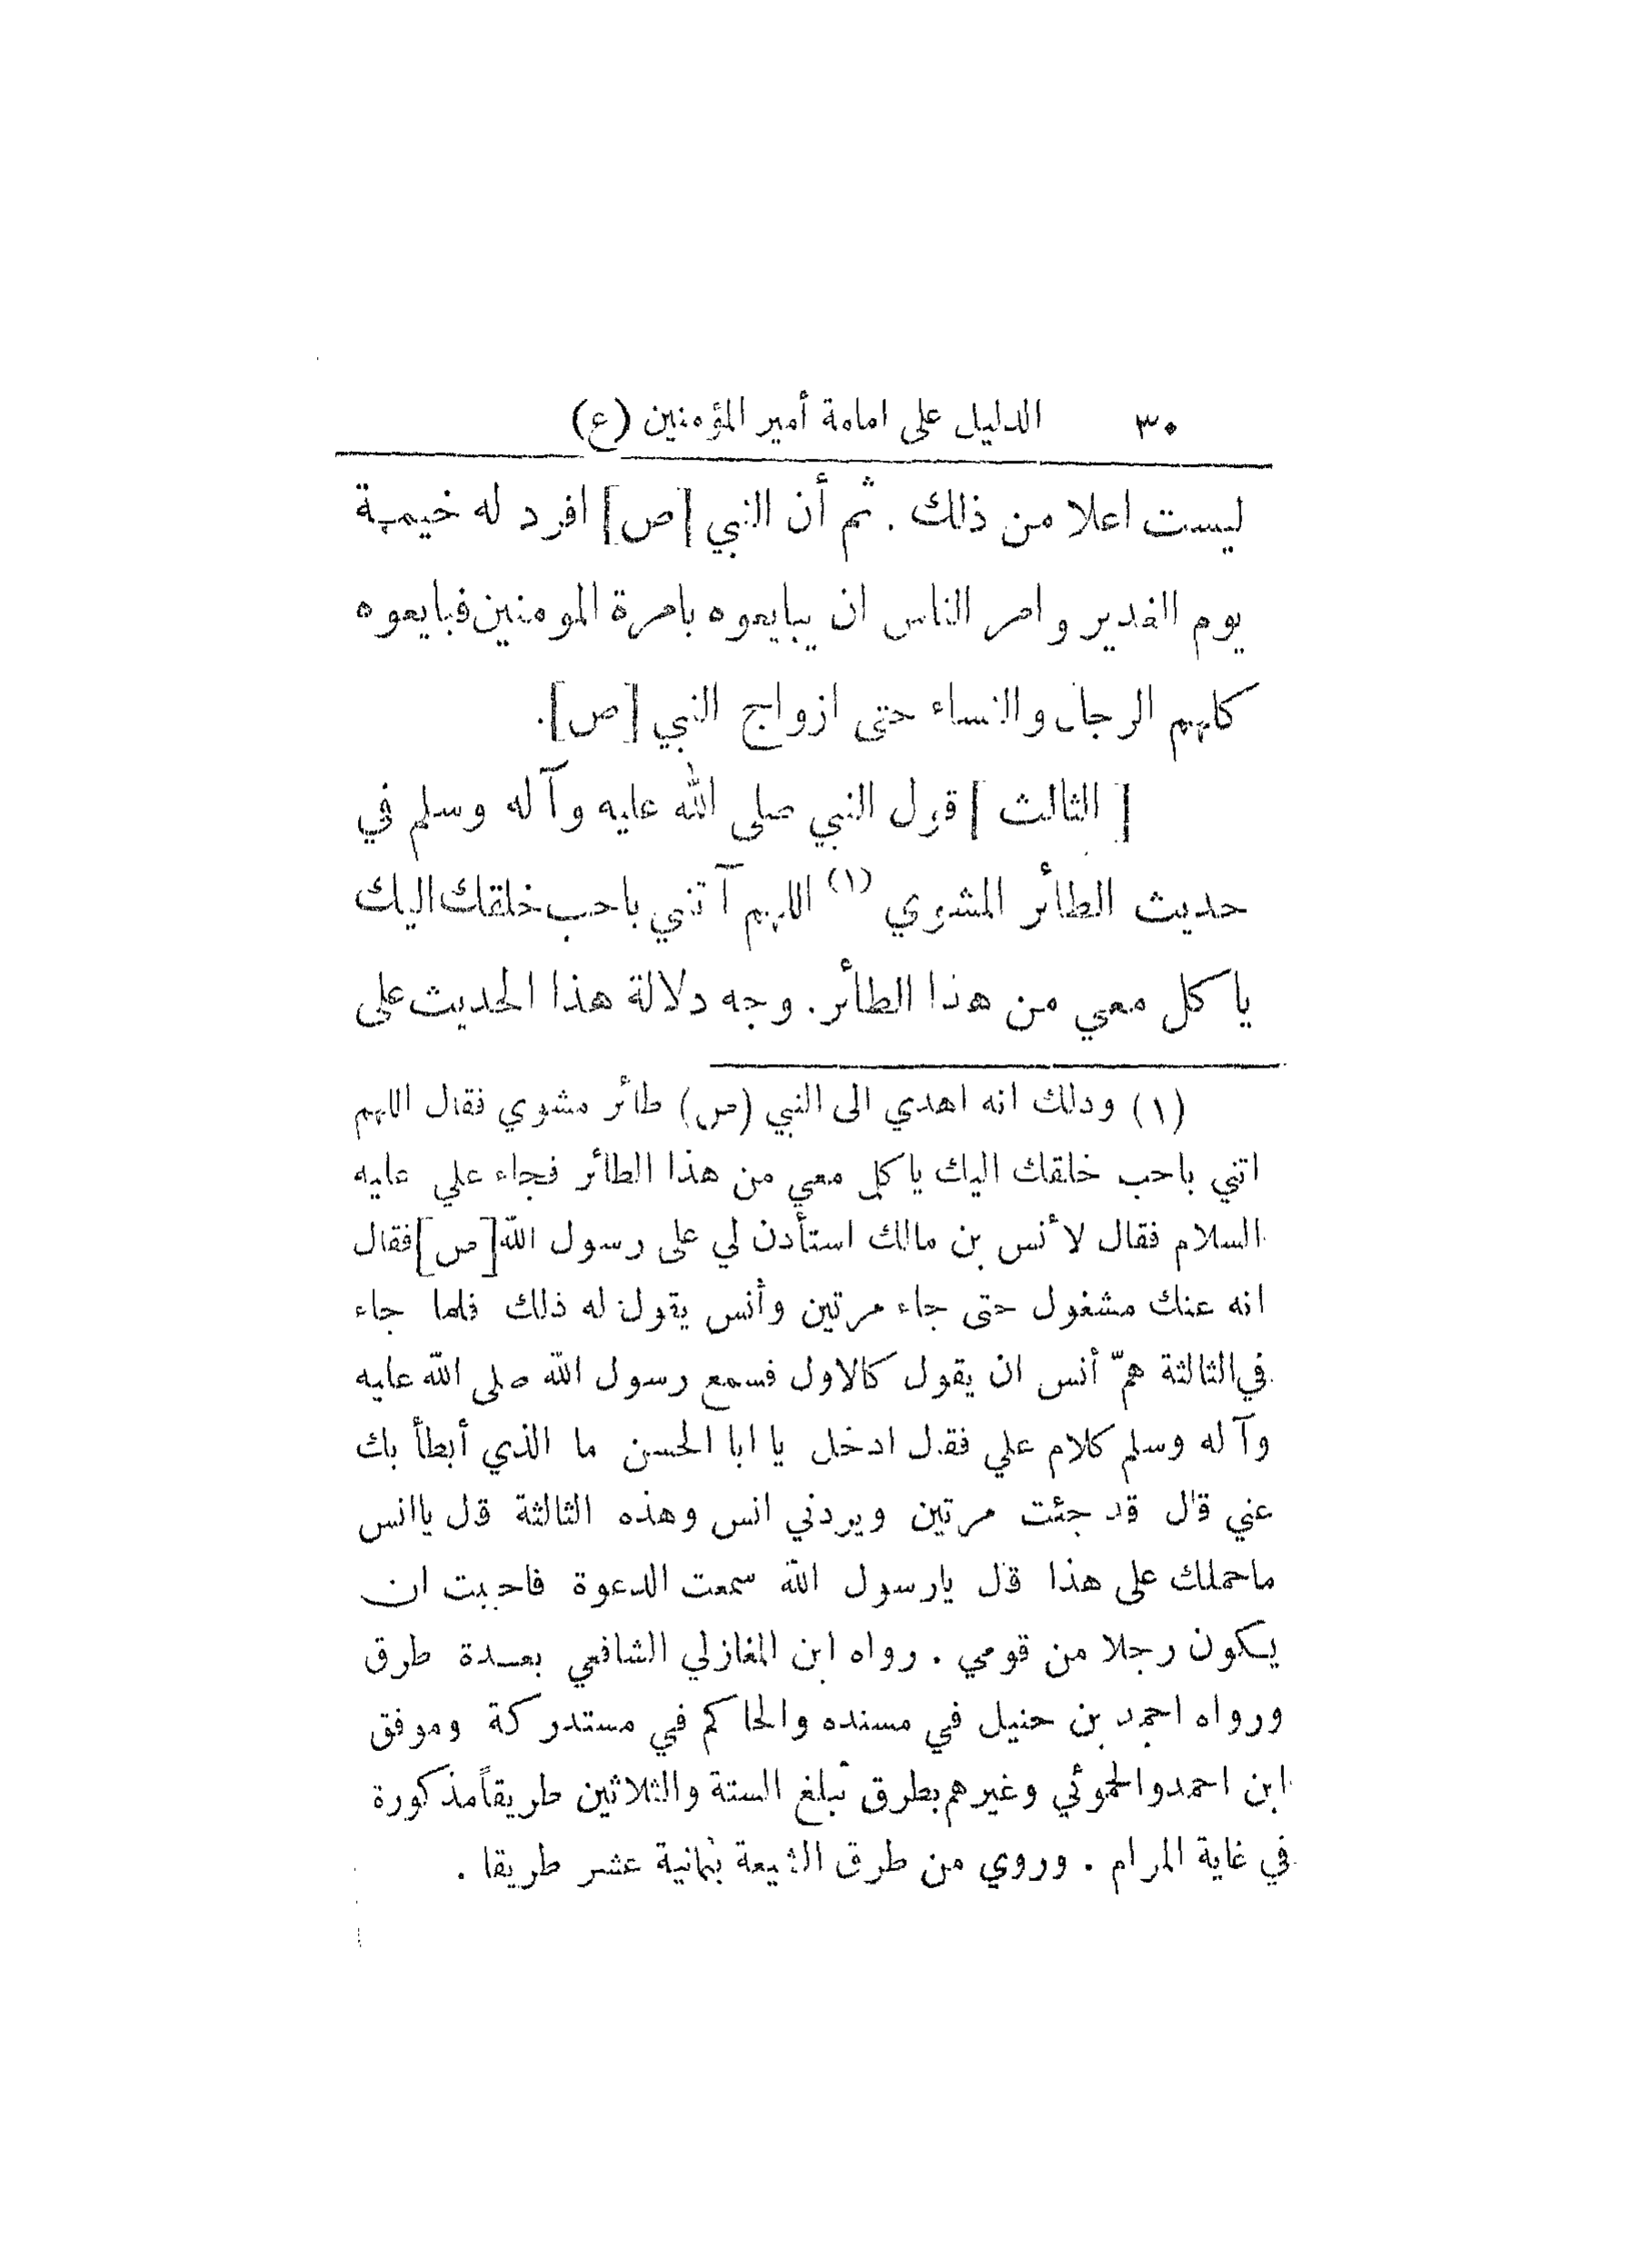 ٣٠ الدليل على امامة أمير المؤمنين (ع)
ليست اعلا من ذلك . ثم أن النبي [ص] افرد له خيمة
يوم الغدير وامر الناس ان يبايعوه بامرة المومنين فبايعوه
كلهم الرجال والنساء حتى ازواج النبي [ص].
[ الثالث ] قول النبي صلى الله عليه وآله وسلم في
حديث الطائر المشوي (١) اللهم آتني باحب خلقك اليك
ياكل معي من هذا الطائر. وجه دلالة هذا الحديث على
(١) وذلك انه اهدي الى النبي (ص) طائر مشوي فقال اللهم
اتني باحب خلقك اليك ياكل معي من هذا الطائر فجاء علي عليه
السلام فقال لأنس بن مالك استأذن لي على رسول الله[ص]فقال
انه عنك مشغول حتى جاء مرتين وأنس يقول له ذلك فلما جاء
في الثالثة همّ أنس ان يقول كالاول فسمع رسول الله صلى الله عليه
وآله وسلم كلام علي فقال ادخل يا ابا الحسن ما الذي أبطأ بك
عني قال قد جئت مرتين ويردني انس وهذه الثالثة قال ياانس
ماحملك على هذا قال يارسول الله سمعت الدعوة فاحببت ان
يكون رجلا من قومي . رواه ابن المغازلي الشافعي بعدة طرق
ورواه احمد بن حنبل في مسنده والحاكم في مستدركة وموفق
ابن احمد والحموئي وغيرهم بطرق تبلغ الستة والثلاثين طريقاً مذكورة
في غاية المرام . وروي من طرق الشيعة بثمانية عشر طريقا .